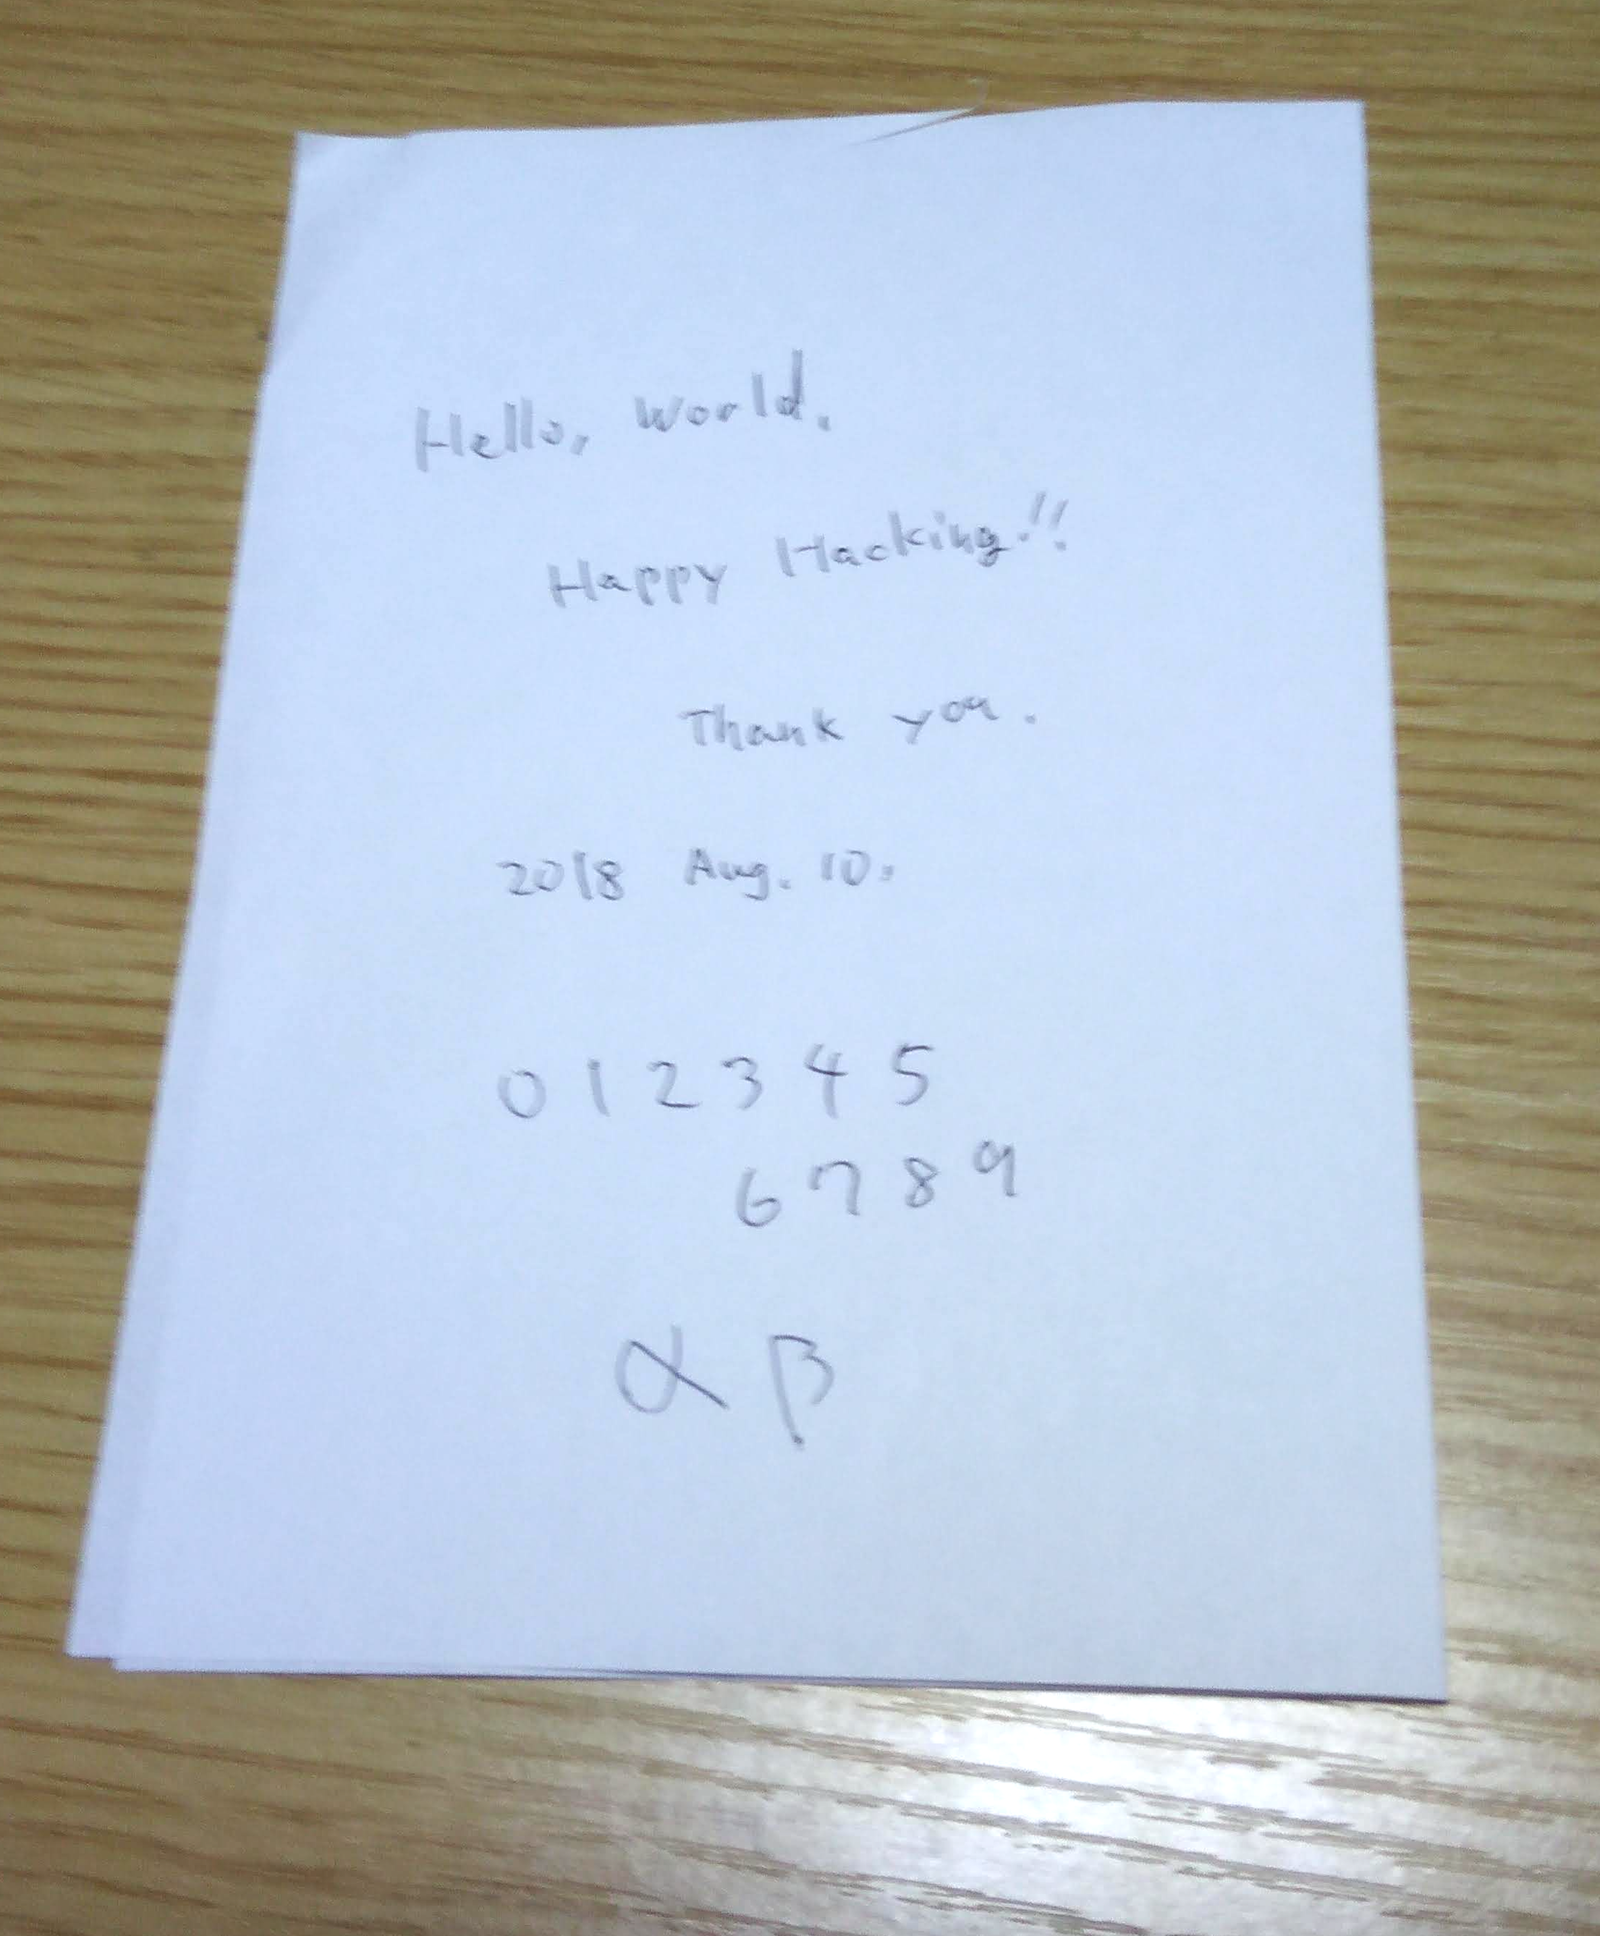 Hello, World.
Happy Hacking!!
Thank you.
2018 Aug. 10.
0 1 2 3 4 5
6 7 8 9
α β